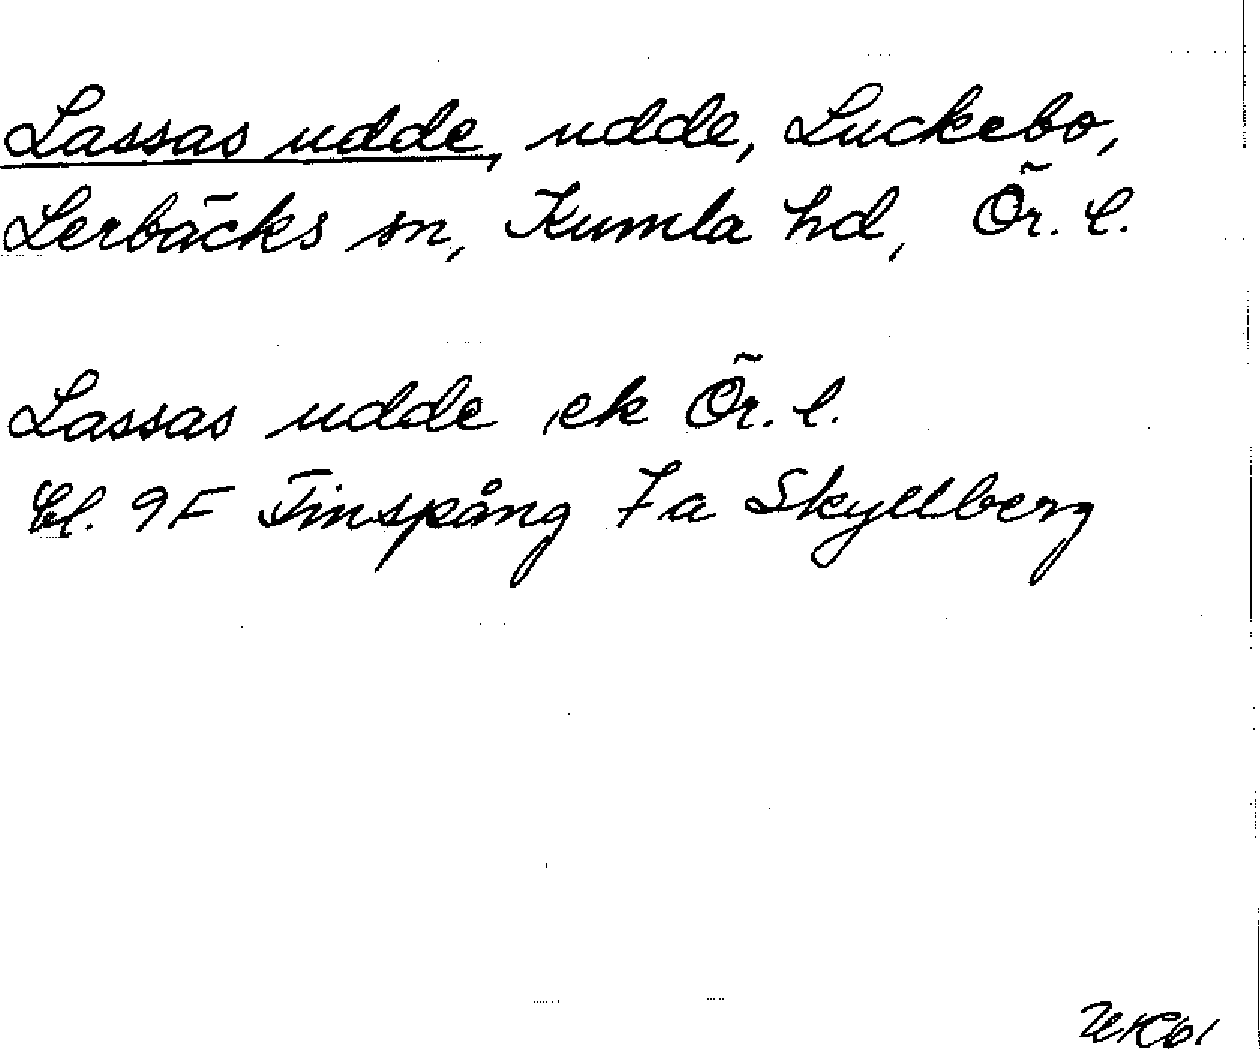 Lassas udde, udde, Luckebo,
Lerbäcks sn, Kumla hd, Ör. l.
Lassas udde ek Ör. l.
bl. 9F Finspång 7a Skyllberg